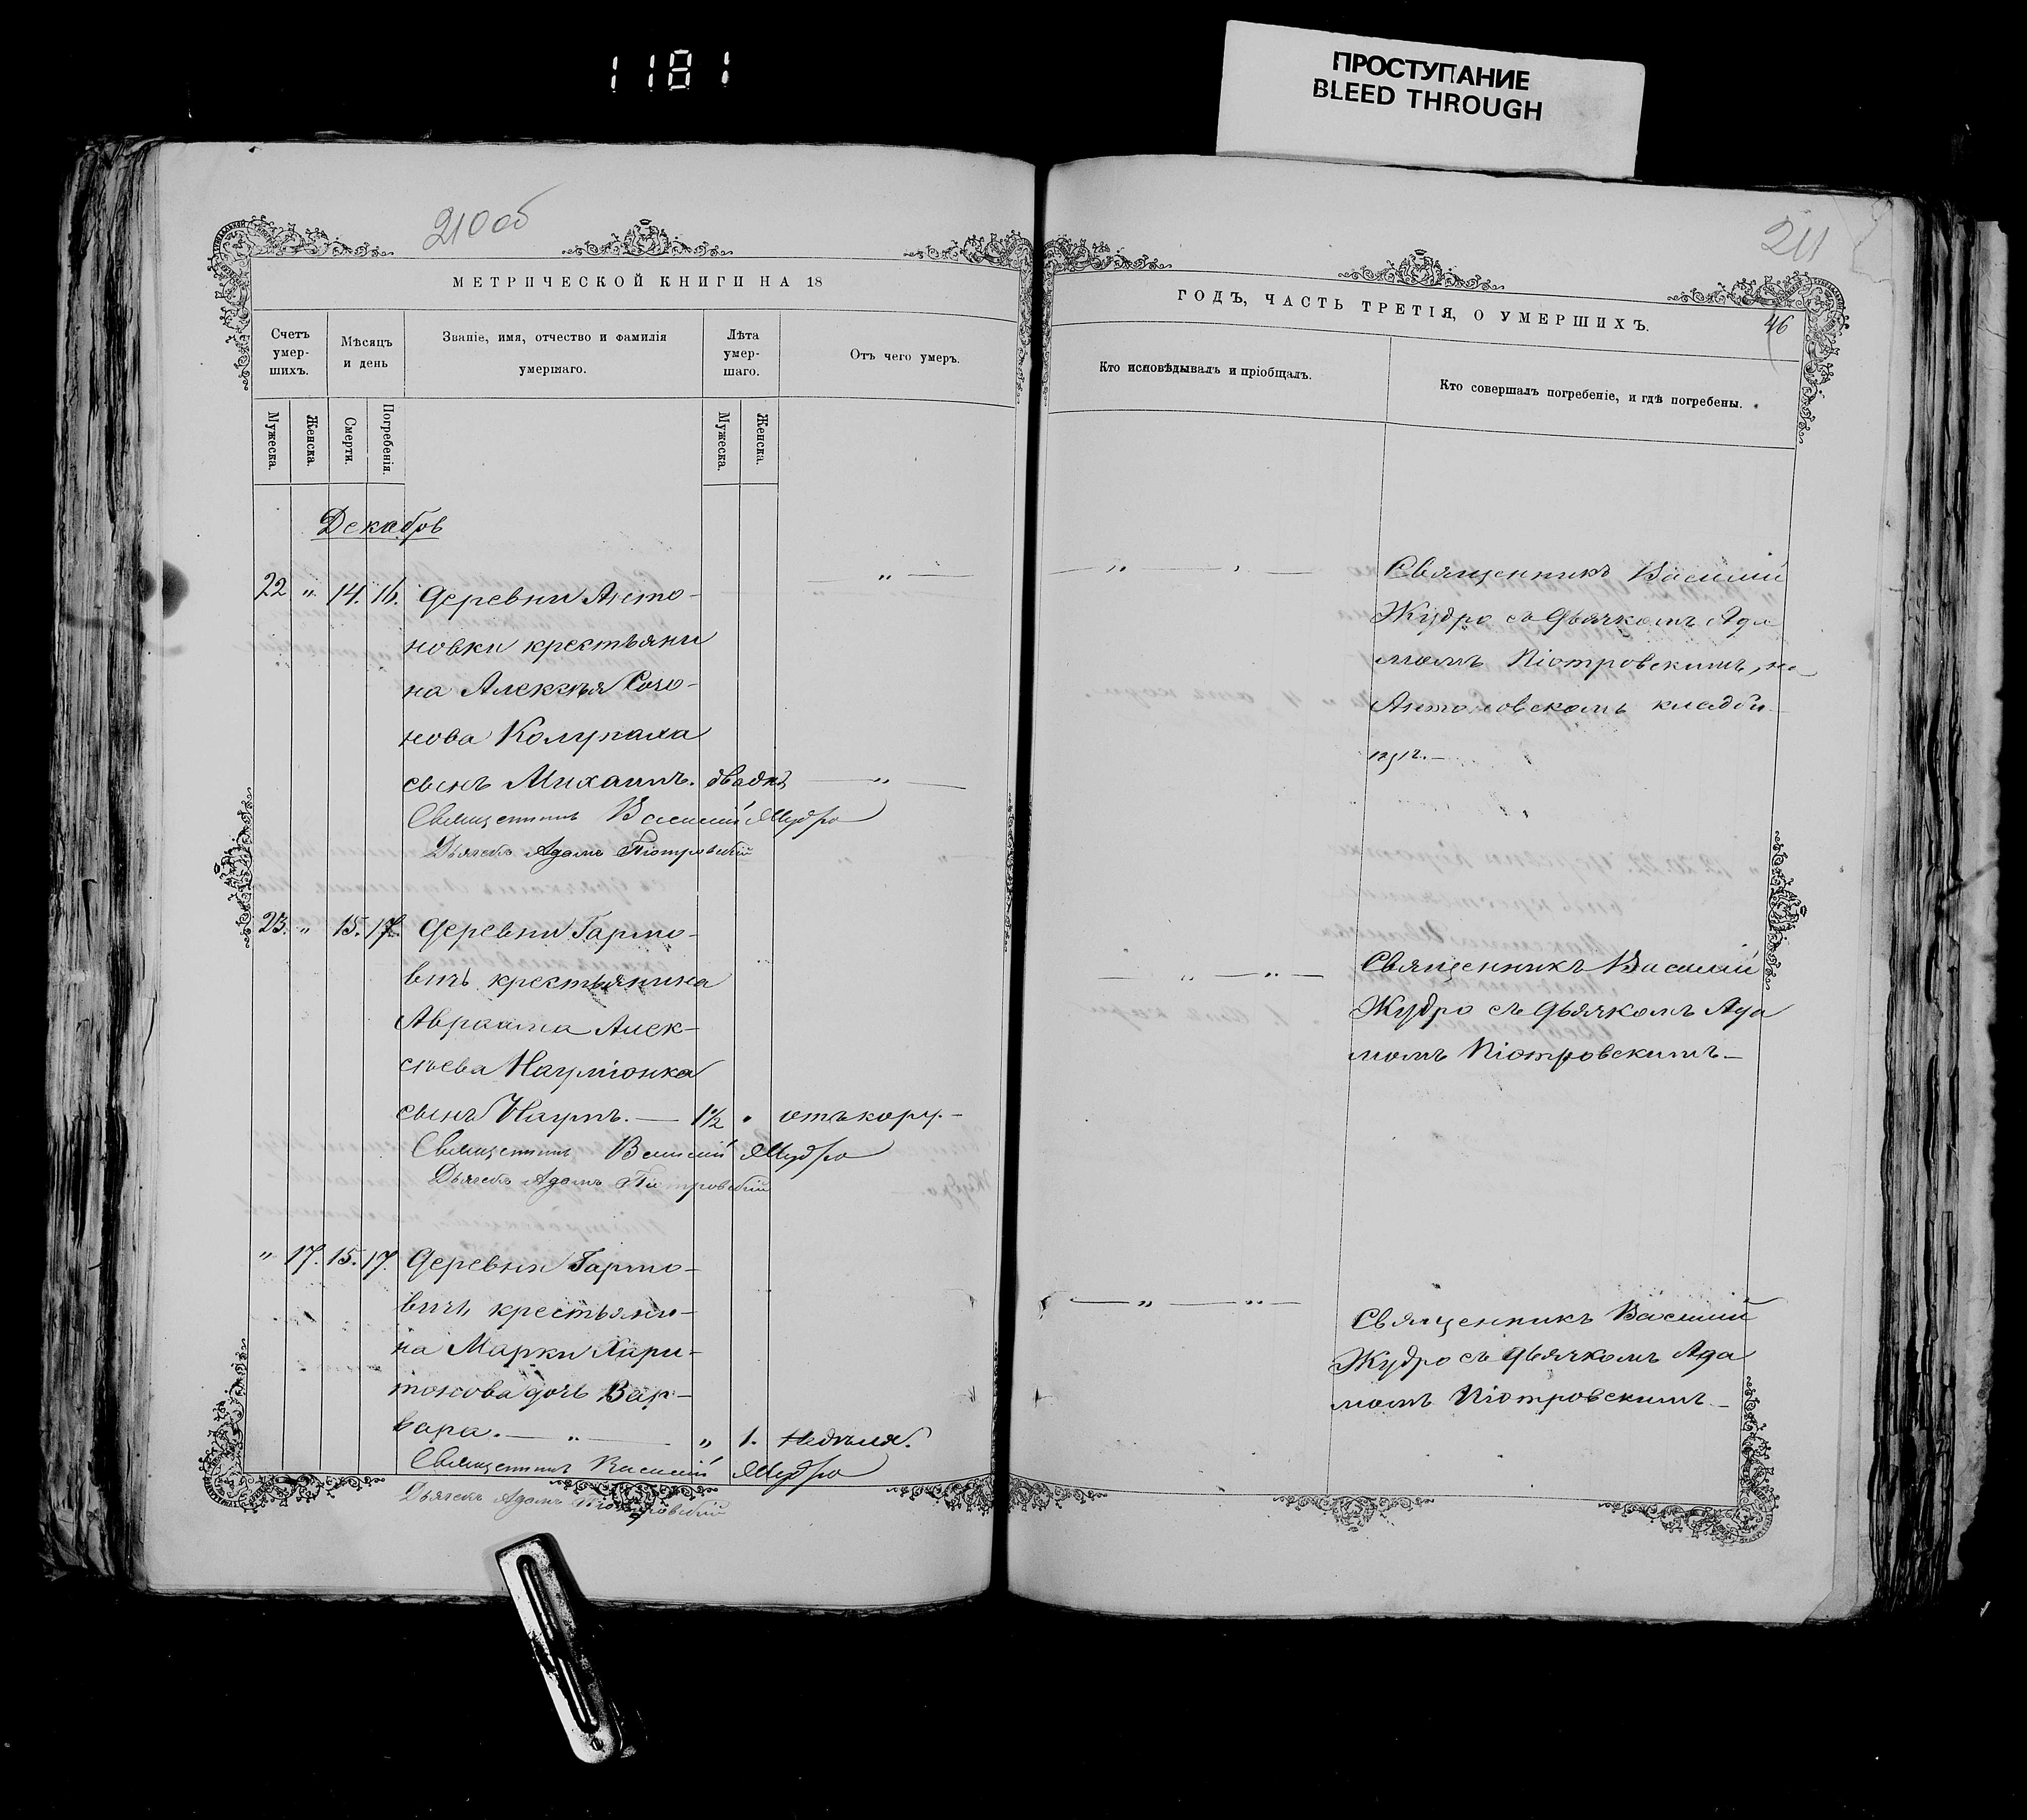 1181
ПРОСТУПАНИЕ
BLEED THROUGH
210 об
МЕТРИЧЕСКОЙ КНИГИ НА 18
Счетъ умер-шихъ.
Мѣсяцъ и день
Званіе, имя, отчество и фамилія умершаго.
Лѣта умер-шаго.
Отъ чего умеръ.
Мужеска.
Женска.
Смерти.
Погребенія.
Мужеска.
Женска.
Декабрь
22 " 14. 16. Деревни Анто-
новки крестьяни
на Алексѣя
нова
сынъ Михаилъ.
Священникъ Василій Жудро
Дьячекъ Адамъ Піотровскій
23. " 15. 17. Деревни Гармо-
вичъ крестьянина
Авраама Алек-
сѣева Наумонка
сынъ Наумъ. — 1½ " отъ кору. —
Священникъ Василій Жудро
Дьячекъ Адамъ Піотровскій
" 17. 15. 17. Деревни Гармо-
вичъ крестьяни-
на Марки Хари-
тонова дочь Вар-
вара. — " — " 1. недѣля.
Священникъ Василій Жудро
Дьячекъ Адамъ Піотровскій
211
ГОДЪ, ЧАСТЬ ТРЕТІЯ, О УМЕРШИХЪ.
46
Кто исповѣдывалъ и пріобщалъ.
Кто совершалъ погребеніе, и гдѣ погребены.
Священникъ Василій
Жудро съ дьячкомъ Ада
момъ Піотровскимъ, на
Антоновскомъ кладби-
щѣ. —
Священникъ Василій
Жудро съ дьячкомъ Ада
момъ Піотровскимъ —
Священникъ Василій
Жудро съ дьячкомъ Ада
момъ Піотровскимъ —